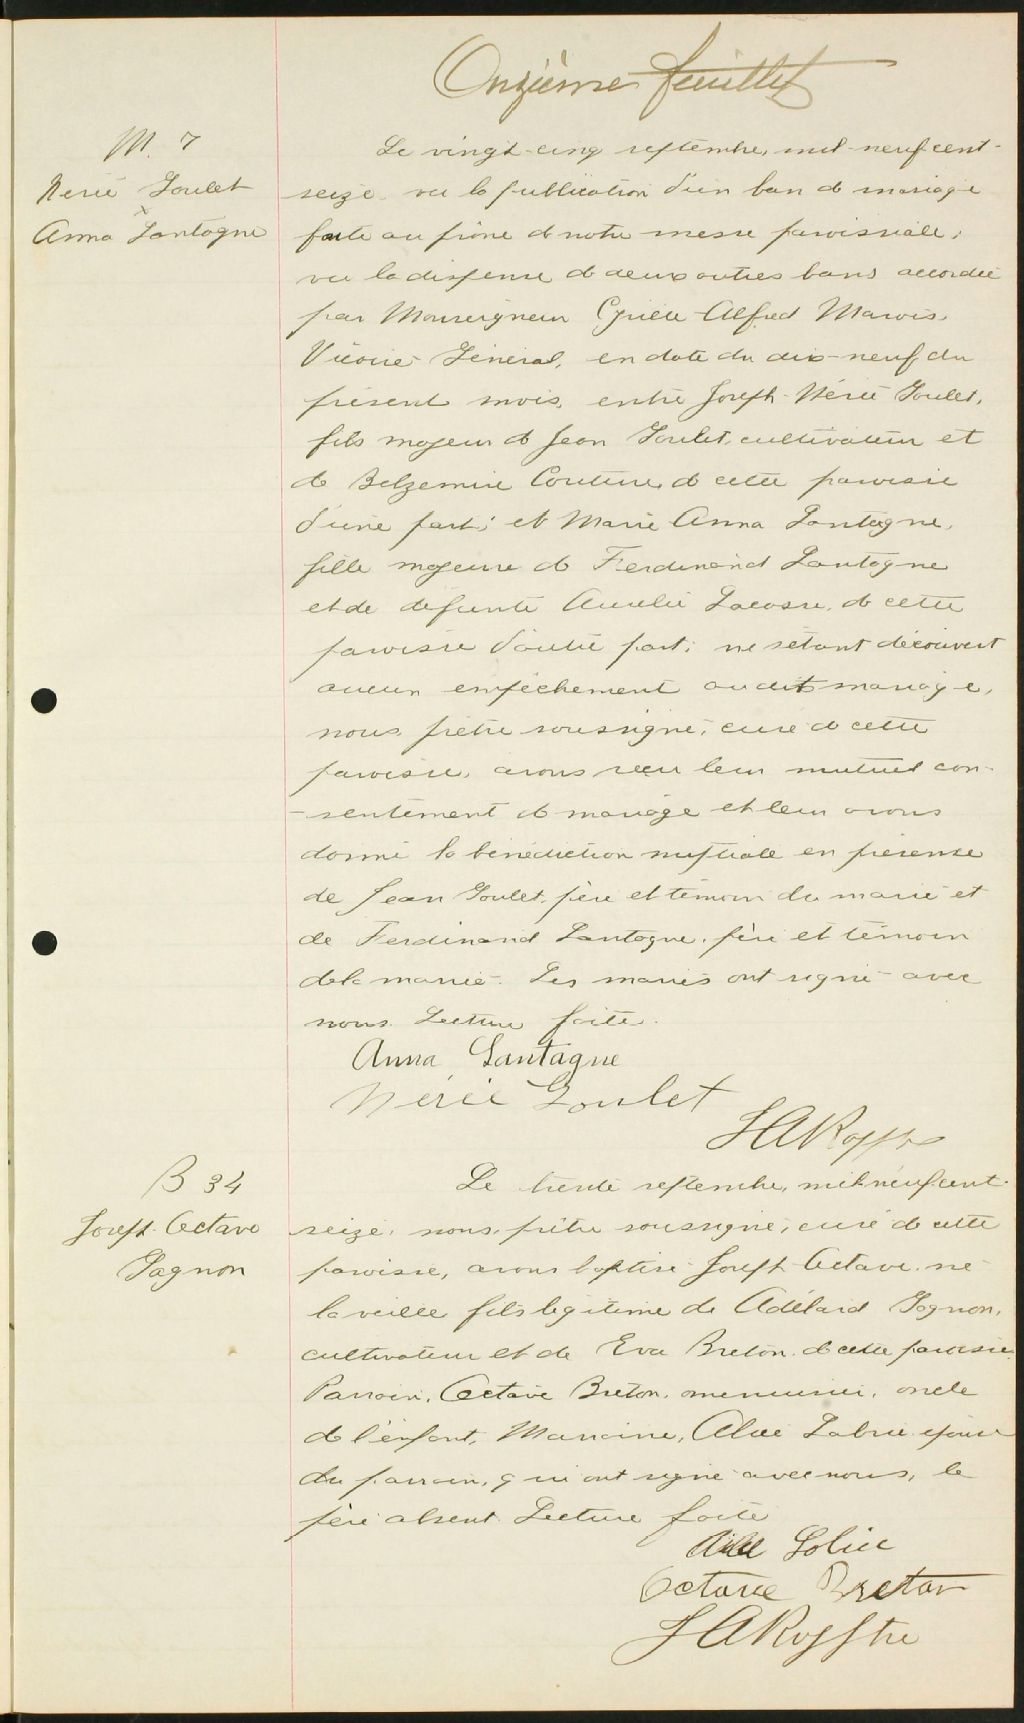 Onzième feuillet
M. 7
Nérée Goulet
x
Anna Lantagne
Le vingt-cinq septembre, mil-neuf cent-
seize vu la publication d'un ban de mariage
faite au prône de notre messe paroissiale;
vu la dispense de deux autres bans accordée
par Monseigneur Cyrille Alfred Marois,
Vicaire Général, en date du dix-neuf du
présent mois, entre Joseph Nérée Goulet,
fils majeur de Jean Goulet, cultivateur et
de Belzemire Couture, de cette paroisse
d'une part; et Marie Anna Lantagne,
fille majeure de Ferdinand Lantagne
et de défunte Aurélie de cette
paroisse d'autre part; ne s'étant découvert
aucun empêchement au dit mariage,
nous, prêtre soussigné, curé de cette
paroisse, avons reçu leur mutuel con-
-sentement de mariage et leur avons
donné la bénédiction nuptiale en présence
de Jean Goulet, père et témoin du marié et
de Ferdinand Lantagne, père et témoin
de la mariée. Les mariés ont signé avec
nous. Lecture faite.
Anna Lantagne
Nérée Goulet
B 34
Joseph Octave
Gagnon
Le trente septembre, mil neuf cent
seize, nous, prêtre soussigné, curé de cette
paroisse, avons baptisé Joseph Octave né
la veille fils légitime de Adélard Gagnon,
cultivateur et de Eva Breton de cette paroisse
Parrain, Octave Breton, menuisier, oncle
de l'enfant, Marraine, épouse
du parrain, qui ont signé avec nous, le
père absent. Lecture faite
Octave Breton